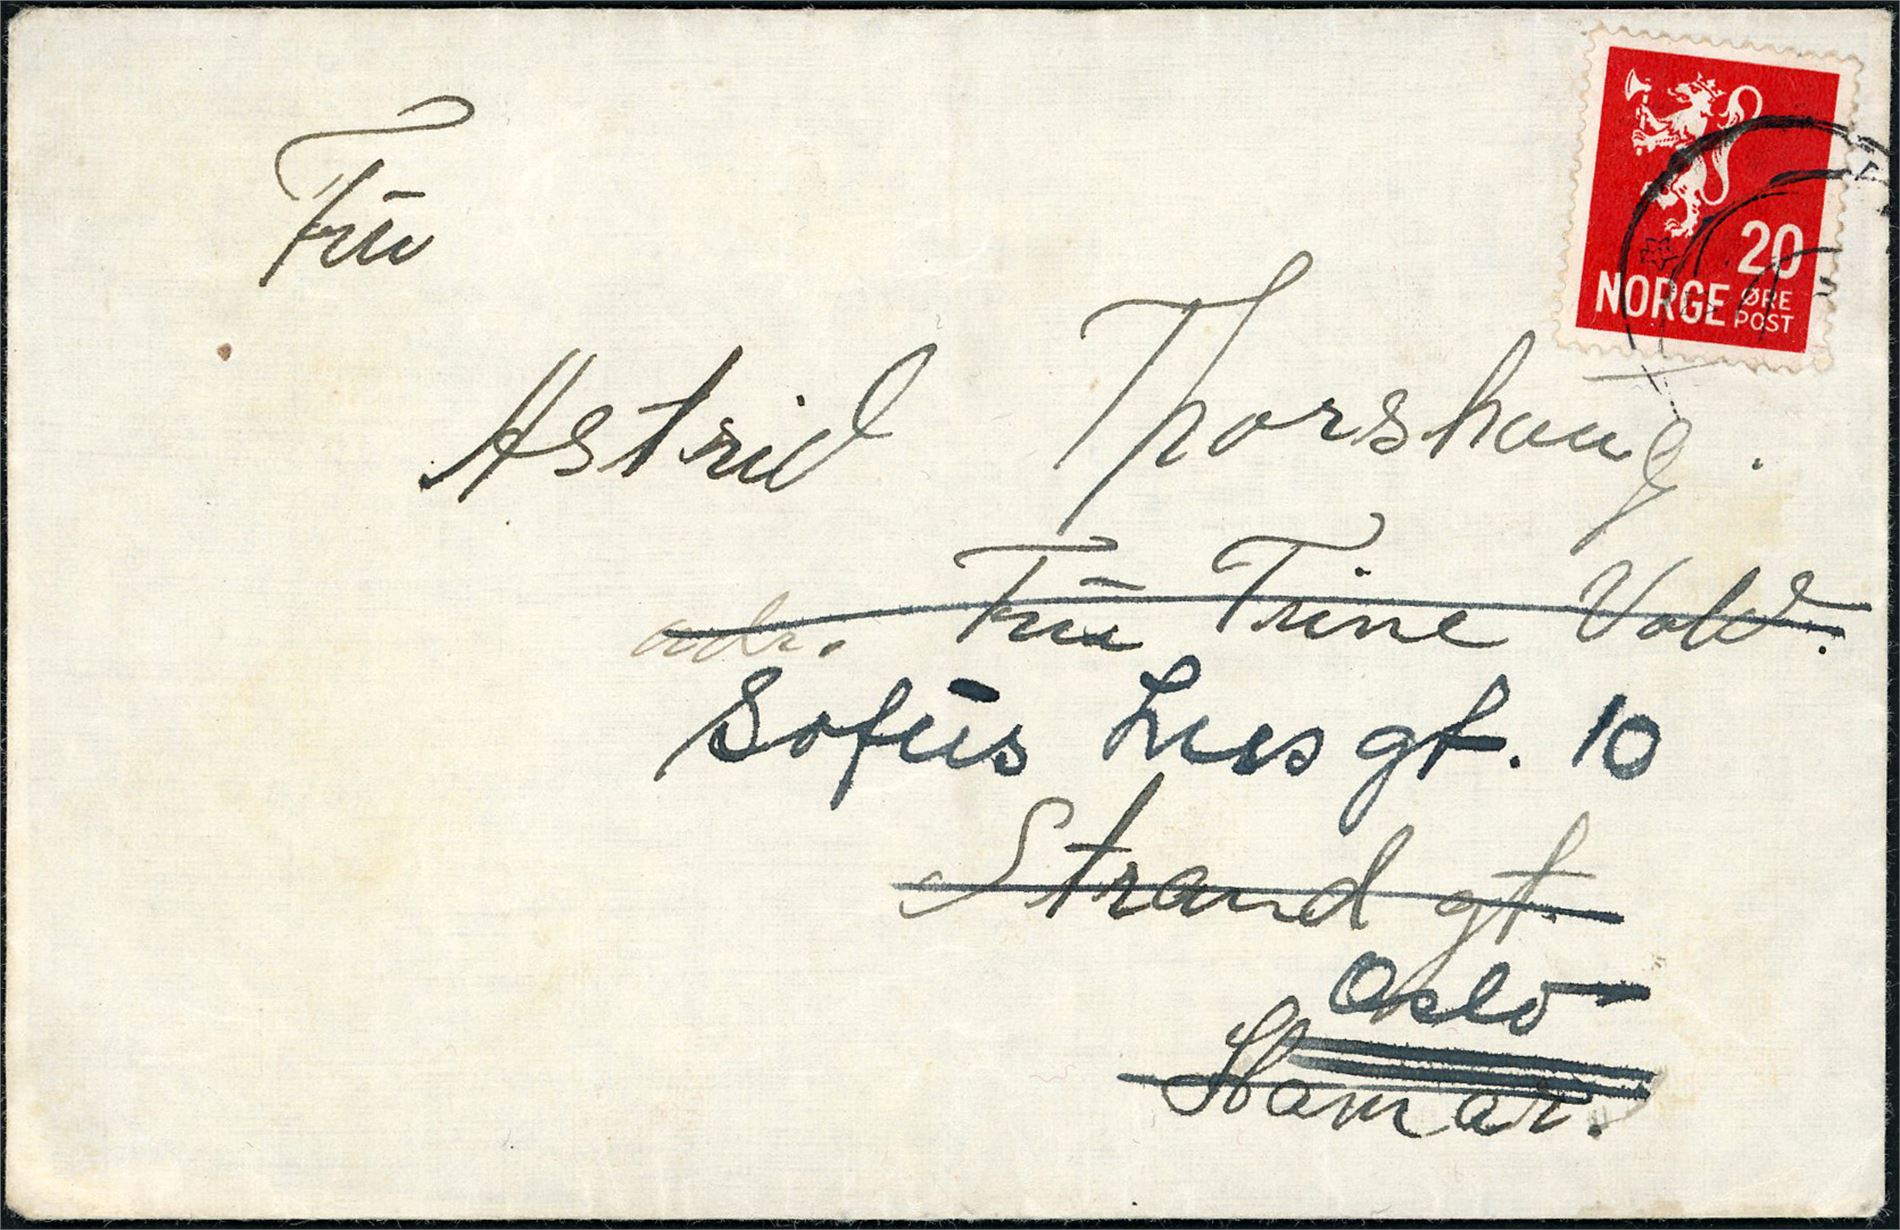 Fru
Astrid Thorshaug.
adr. Fru Trine Vold.
Sofus Lies gt. 10
Strand gt.
Oslo
Hamar.
20
NORGE ØRE
POST